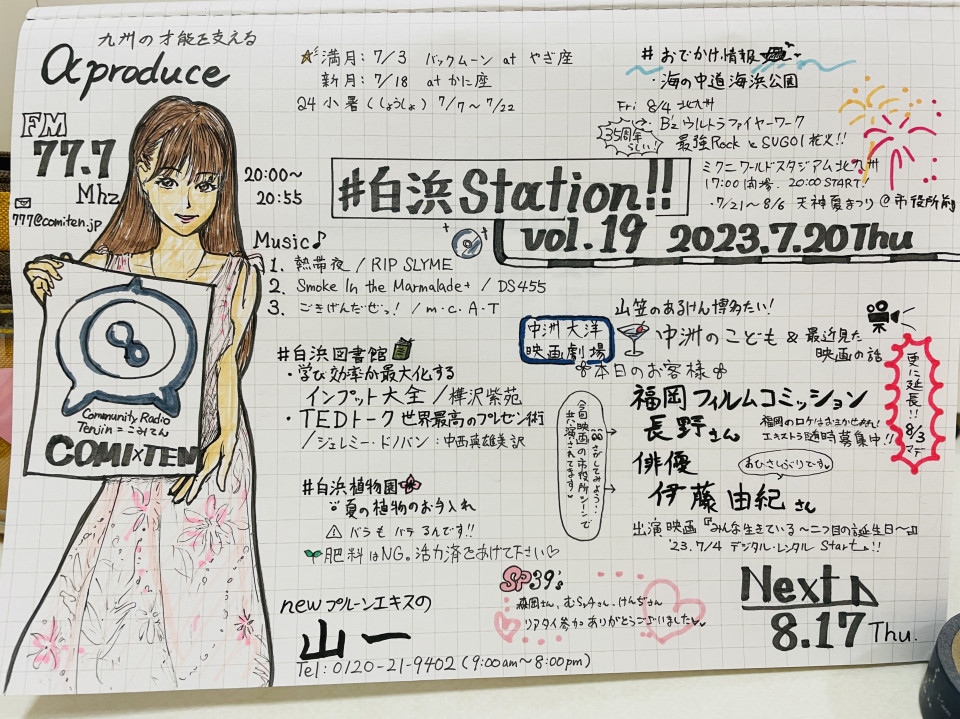 九州の才能を支える
αproduce
FM
77.7
Mhz
✉
777@comiten.jp
20:00〜
20:55
☆満月：7/3 バックムーン at やぎ座
新月：7/18 at かに座
24小暑（しょうしょ）7/7〜7/22
# おでかけ情報
・海の中道海浜公園
Fri 8/4 北九州
35周年らしい!
B'z ウルトラファイヤーワーク
最強Rock と SUGOI 花火!!
ミクニワールドスタジアム北九州
17:00開場. 20:00START!
・7/21〜8/6 天神夏まつり @市役所前
#白浜Station!!
vol.19 2023.7.20Thu
Music♪
1. 熱帯夜 / RIP SLYME
2. Smoke In the Marmalade+ / DS455
3. ごきげんだぜっ! / m・c・A・T
Community Radio
Tenjin = こみてん
COMI×TEN
#白浜図書館
・学び効率が最大化する
インプット大全 / 樺沢紫苑
・TEDトーク 世界最高のプレゼン術
/ ジェレミー・ドノバン：中西真雄美訳
#白浜植物園
夏の植物のお手入れ
⚠ バラもバテるんです!!
肥料はNG。活力済をあげて下さい♡
newプルーンエキスの
山一
Tel：0120-21-9402（9:00am〜8:00pm）
山笠のあるけん博多たい!
中洲大洋
映画劇場
中洲のこども & 最近見た
映画の話
更に延長!! 8/3マデ
本日のお客様
福岡フィルムコミッション
長野さん
福岡のロケはおまかせあれ!
エキストラ随時募集中!!
俳優
おひさしぶりです♡
伊藤由紀さん
今回映画の市役所シーンで
共演されてます♡
さがしてみよう…
出演映画『みんな生きている 〜二つ目の誕生日〜』
'23.7/4 デジタル・レンタル Start!!
SP39's
森岡さん、むらっちさん、けんぢさん
リアタイ参加ありがとうございました♡
Next
8.17Thu.